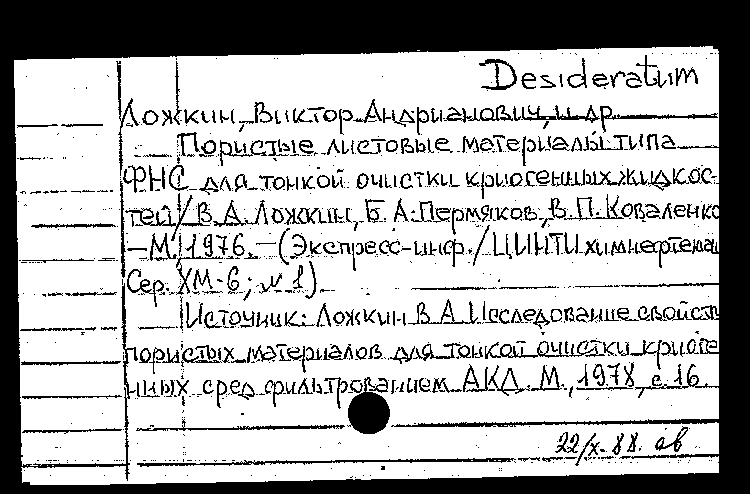 Desideratum
Ложкин, Виктор Андрианович, и др
Пористые листовые материалы типа
ФНС для тонкой очистки криогенных жидкос-
тей / В.А. Ложкин, Б.А. Пермяков, В.П. Коваленко
—М., 1976.—(Экспресс-инф./ЦИНТИхимнефтема
Сер. ХМ-6; № 1)
Источник: Ложкин В.А. Исследование свойств
пористых материалов для тонкой очистки криоге
нных сред фильтрованием АКД. М., 1978, с. 16.
22/X-88. ав